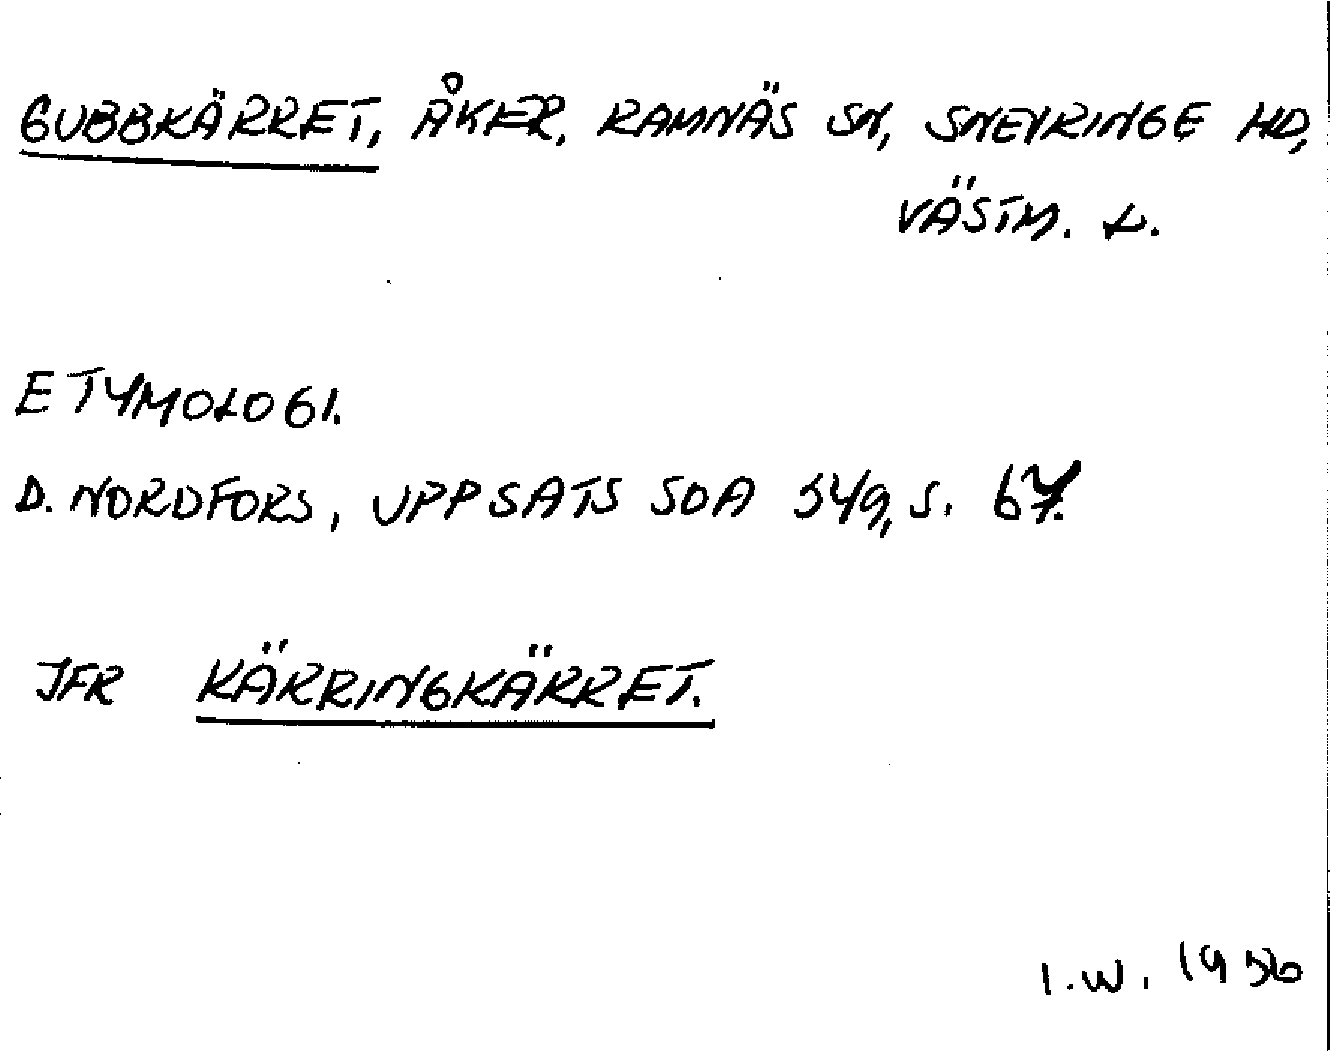 GUBBKÄRRET, ÅKER, RAMNÄS SN, SNEVRINGE HD,
VÄSTM. L.
ETYMOLOGI.
D. NORDFORS, UPPSATS SOA 549, S. 67.
JFR KÄRRINGKÄRRET.
I.W. 1956